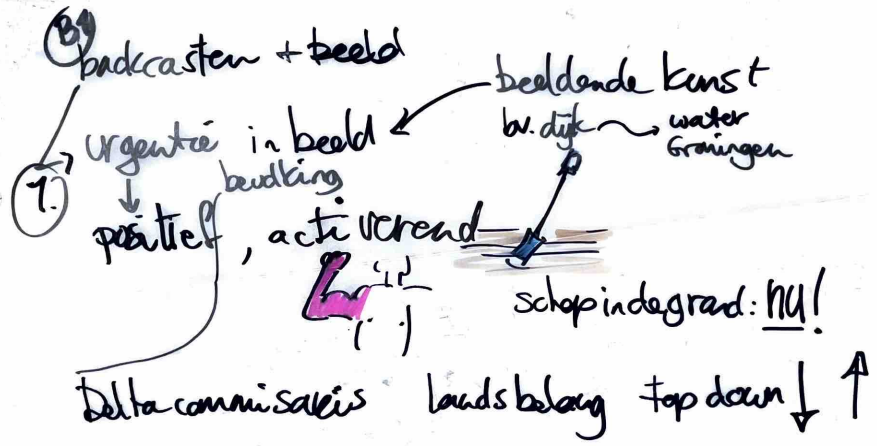 B4
backcasten + beeld
beeldende kunst
bv. dijk → water
Groningen
urgentie in beeld
bevolking
1.
positief, activerend
schop in de grond: nu!
Deltacommisaris landsbelang top down ↓ ↑